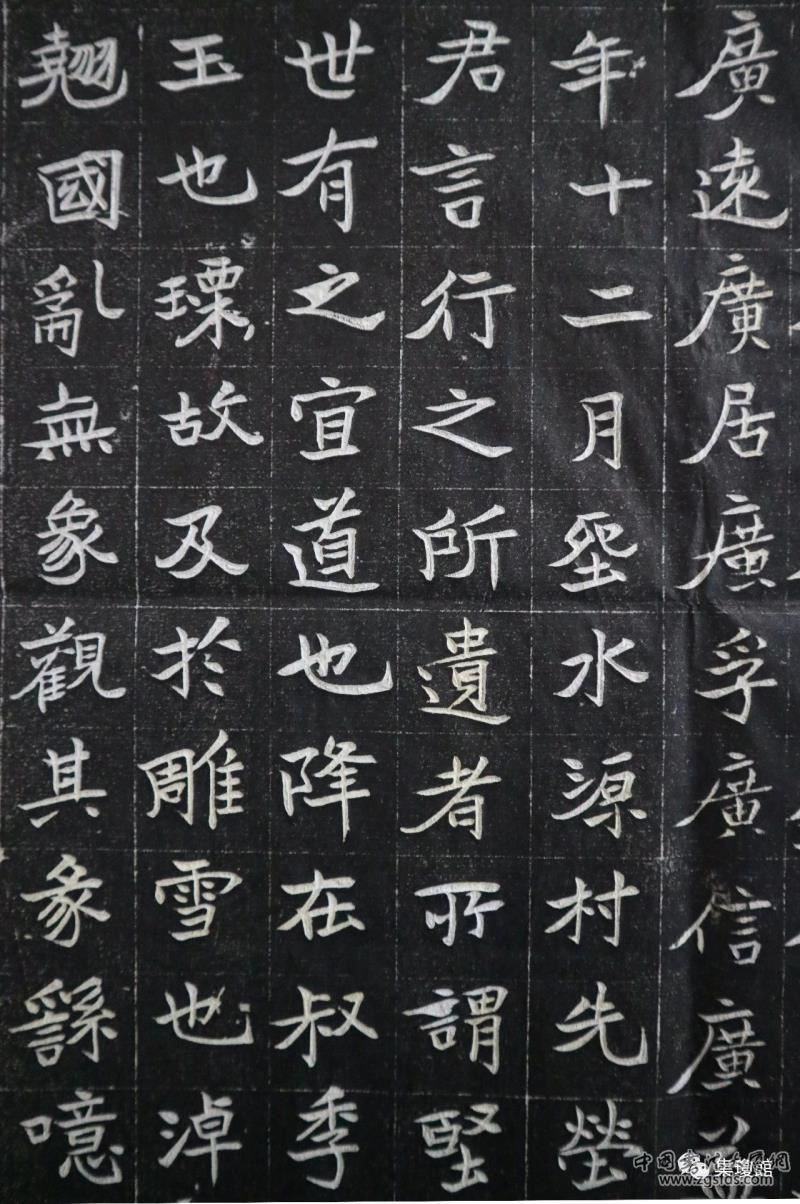 廣遠廣居廣孚廣信廣
年十二月水源村先塋
君言行之所遺者所謂堅
世有之宜道也降在叔季
玉也瑮故及於雕雪也淖
翹國亂無象觀其彖繇噫
集瓊館